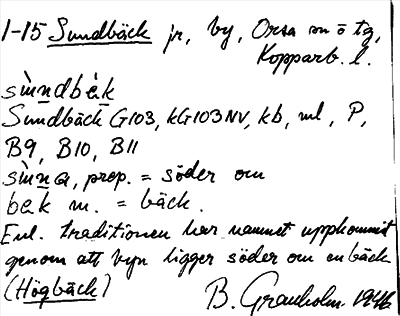 1-15 Sundbäck jr, by, Orsa sn o tg,
Kopparb. l.
sùndbɛ́k
Sundbäck G103, kG103NV, kb, ml, P,
B9, B10, B11
sùna, prep. = söder om
bɛk m. = bäck.
Enl. traditionen har namnet uppkommit
genom att byn ligger söder om en bäck
(Högbäck) B. Granholm 1946